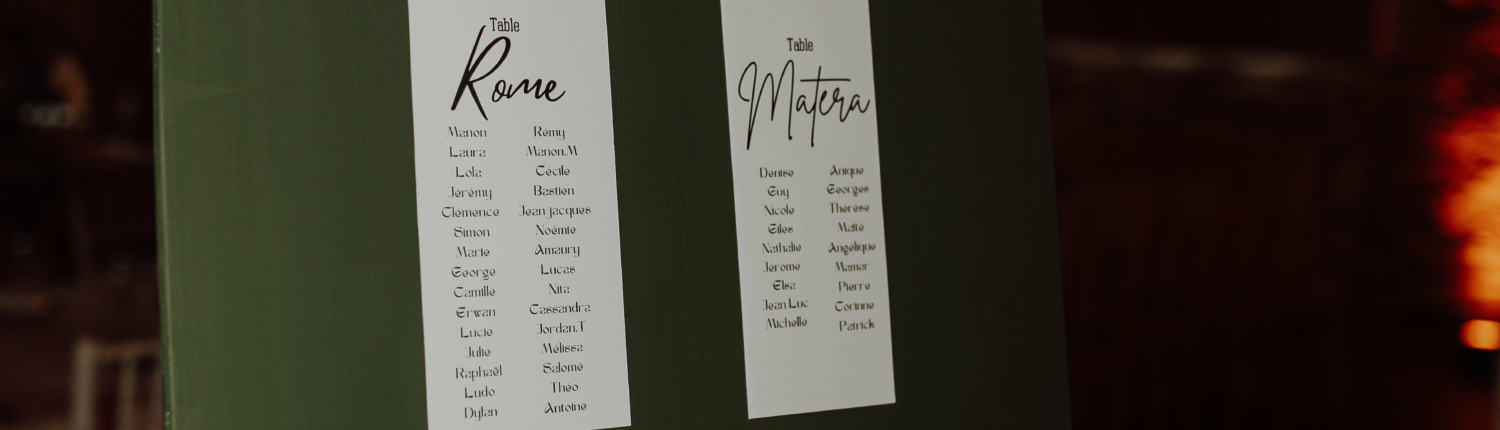 Table
Rome
Manon Rémy
Laura Manon.M
Lola Cécile
Jérémy Bastien
Clémence Jean jacques
Simon Noémie
Marie Amaury
George Lucas
Camille Nita
Erwan Cassandra
Lucie Jordan.T
Julie Mélissa
Raphaël Salomé
Ludo Théo
Dylan Antoine
Table
Matera
Denise Anique
Guy Georges
Nicole Thérèse
Giles Maïte
Nathalie Angélique
Jérome Mamar
Elsa Pierre
Jean Luc Corinne
Michelle Patrick